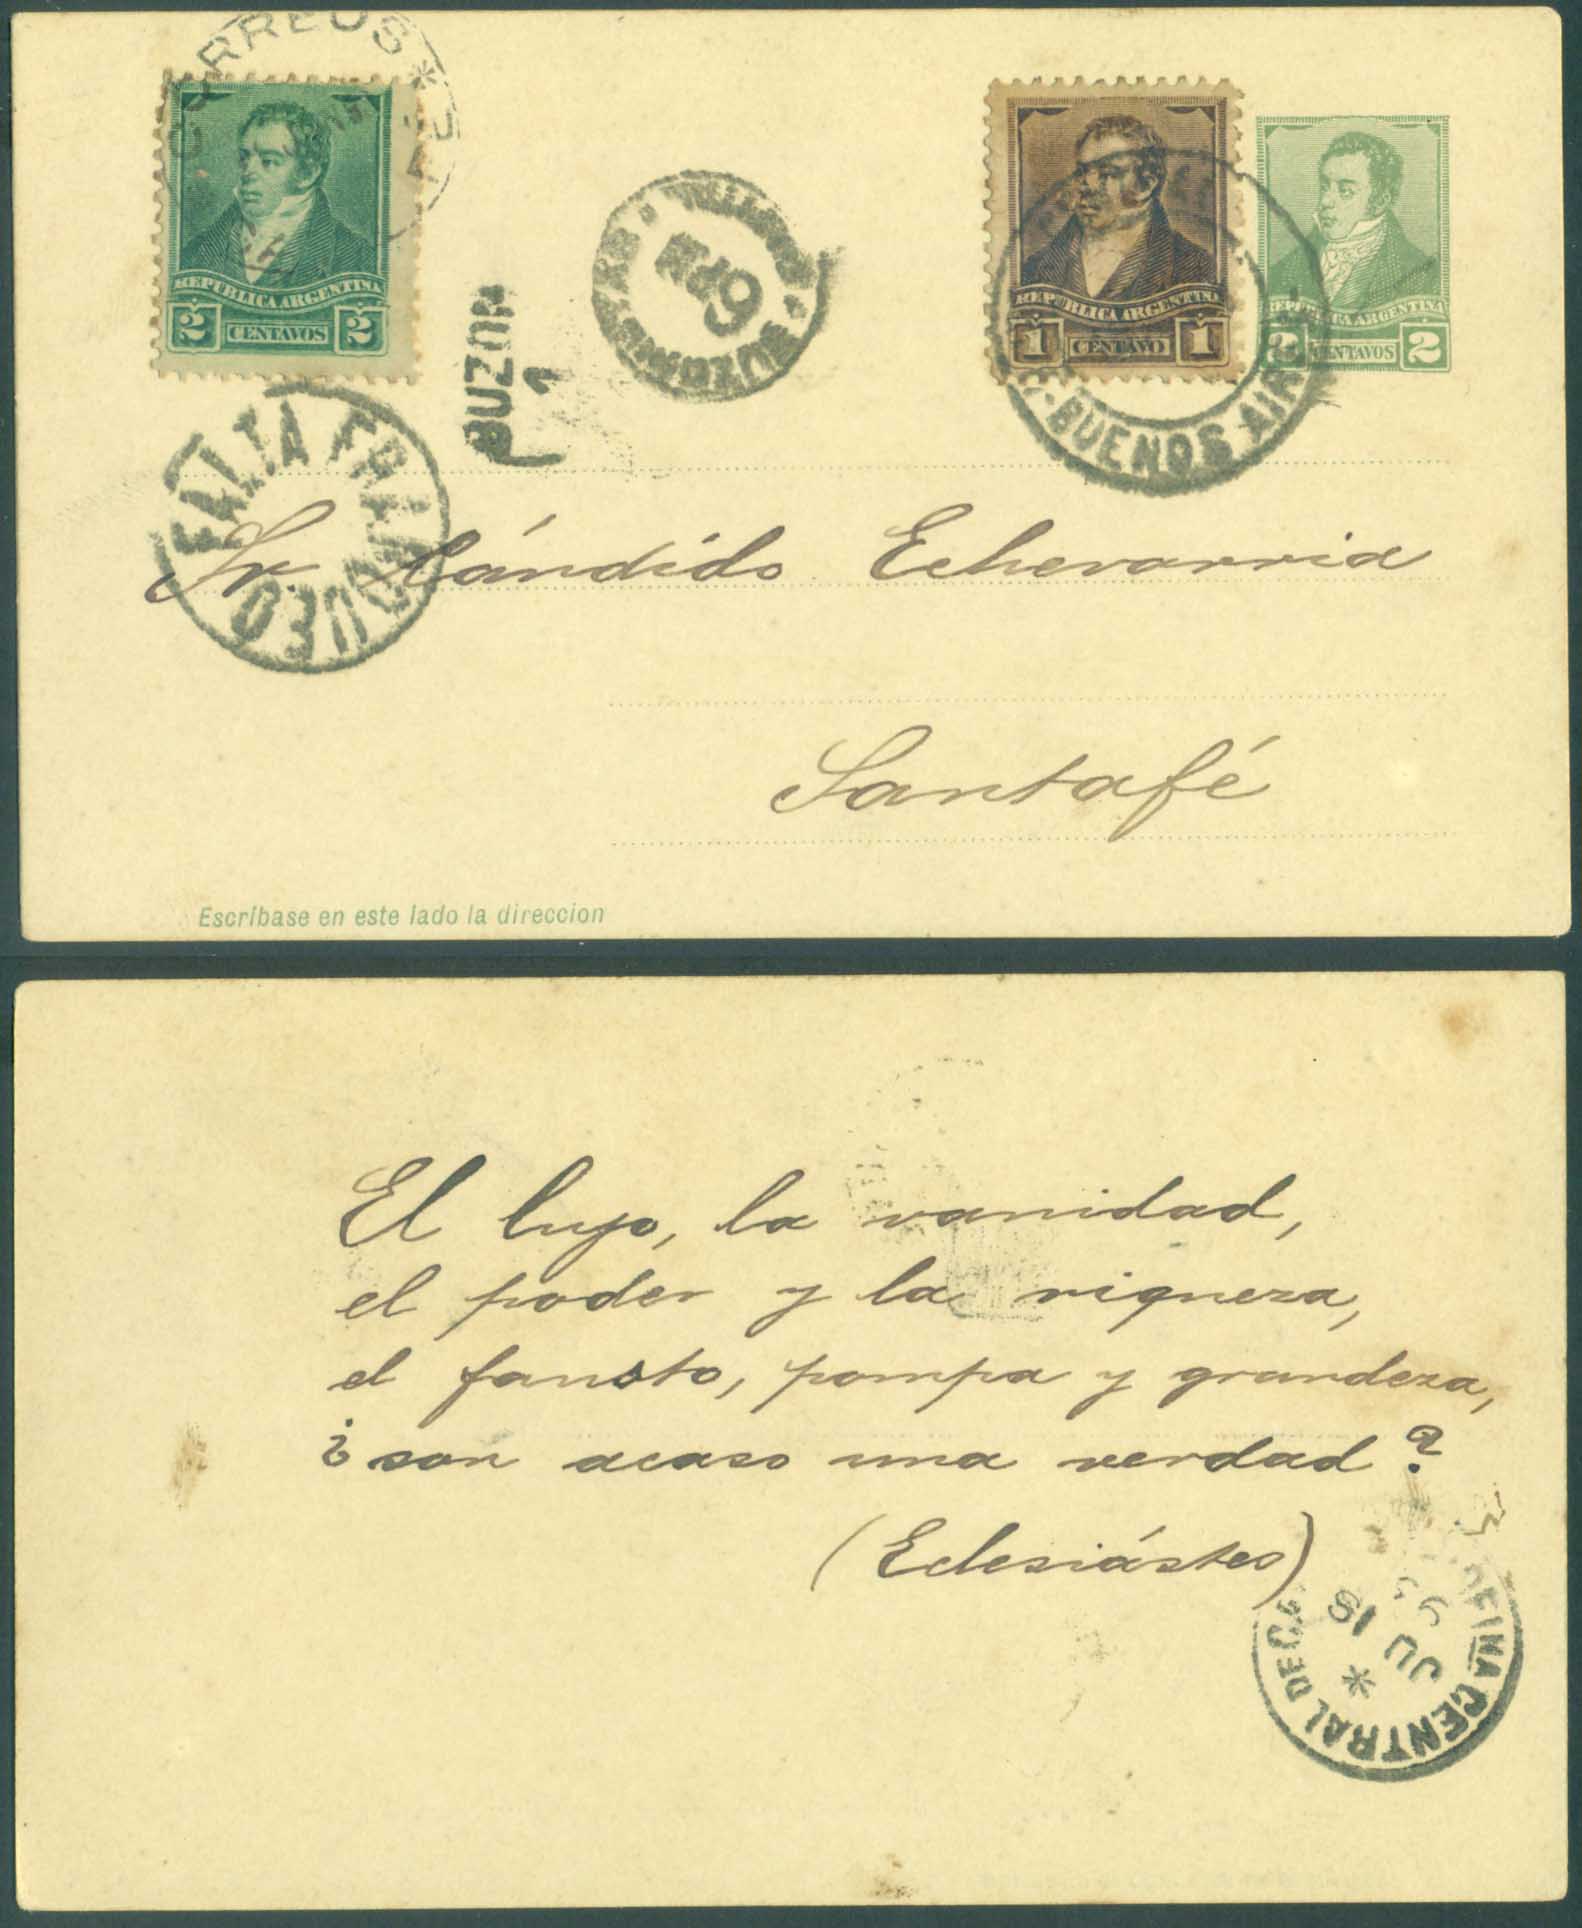 CORREOS *
REPUBLICA ARGENTINA
2 CENTAVOS 2
BUZONISTAS
6PM
BUZON
1
REPUBLICA ARGENTINA
1 CENTAVO 1
REPUBLICA ARGENTINA
2 CENTAVOS 2
BUENOS AIRES
FALTA FRANQUEO
Sr. Cándido Echevarria
Santafé
Escríbase en este lado la direccion
El lujo, la vanidad,
el poder y la riqueza,
el fausto, pompa y grandeza,
¿son acaso una verdad?
(Eclesiástes)
OFINA CENTRAL DE CA
JU 18
*